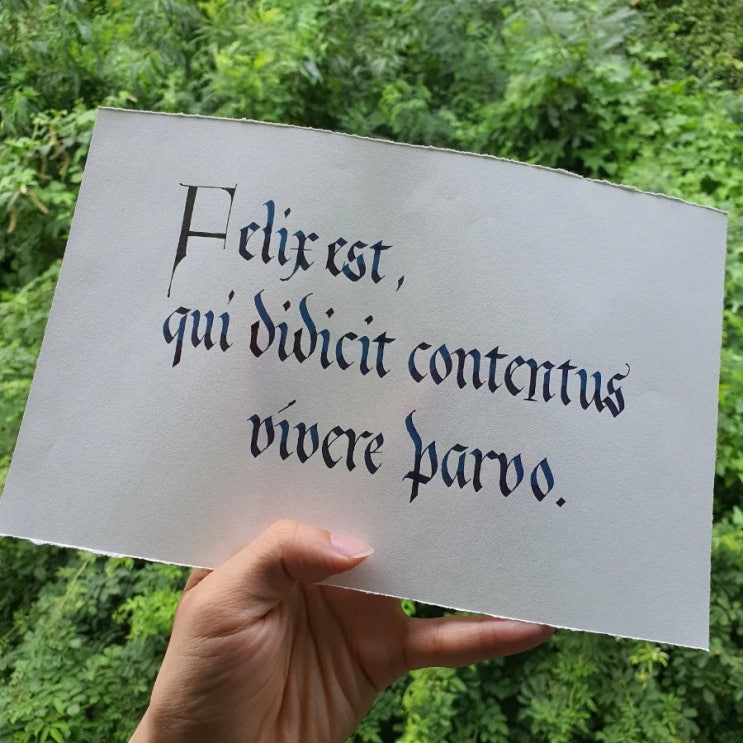 Felix est,
qui didicit contentus
vivere parvo.